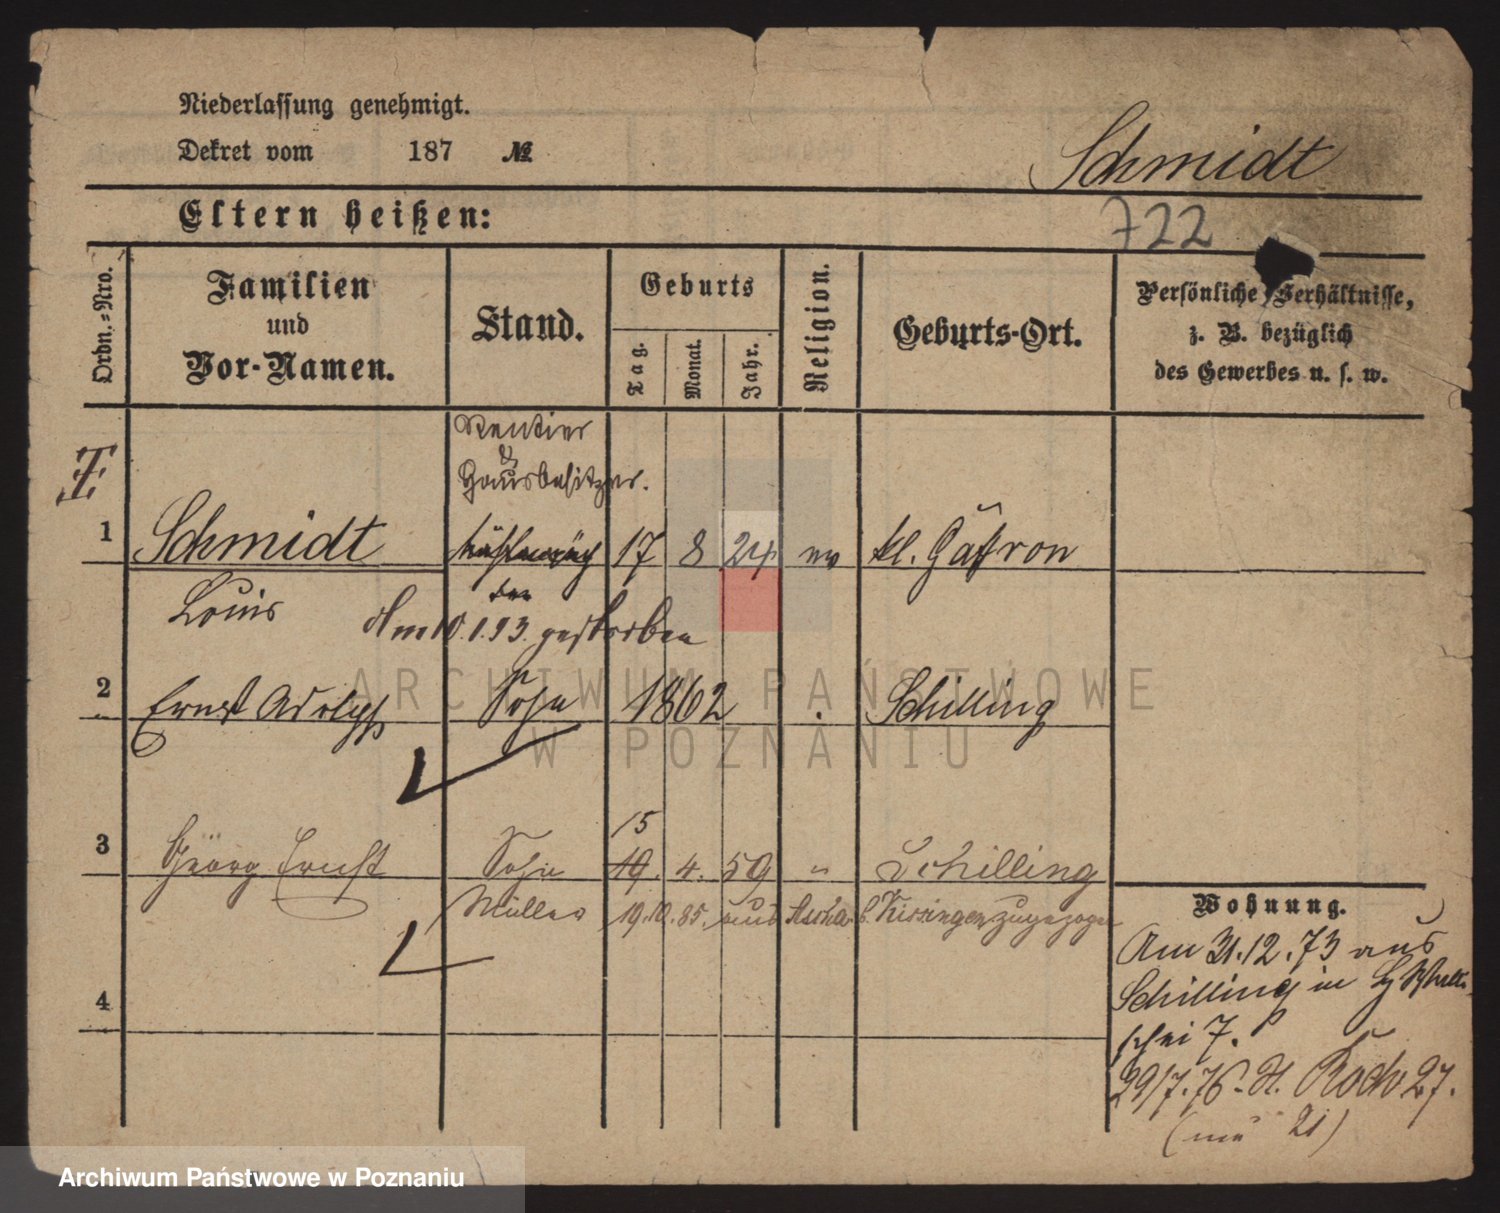 Niederlassung genehmigt.
Dekret vom 187 №
Schmidt
Eltern heißen:
722
Ordn.=Nro.
Familien
und
Vor-Namen.
Stand.
Geburts
Tag.
Monat.
Jahr.
Religion.
Geburts-Ort.
Persönliche Verhältnisse,
z. B. bezüglich
des Gewerbes u. s. w.
Rentier
&
Hausbesitzer.
1 Schmidt 17 8 24 ev kl. Gaffron
Louis
Am 10.1.93. gestorben
2 Ernst Adolph Sohn 1862 Schilling
15
3 Georg Ernst Sohn 19. 4. 59 " Schilling
Müller 19.10.85. aus b. Kissingen zugezogen
4
Wohnung.
Am 31.12.73 aus
Schilling in
7.
29/7.76. St. Roch 27.
(neu 21)
ARCHIWUM PAŃSTWOWE
W POZNANIU
Archiwum Państwowe w Poznaniu